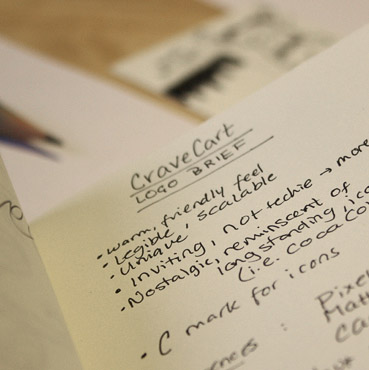 CraveCart
LOGO BRIEF
• warm, friendly feel
• Legible, scalable
• Unique
• Inviting, not techie → more
• Nostalgic, reminiscent of
longstanding
(i.e. coca
• C mark for icons
: